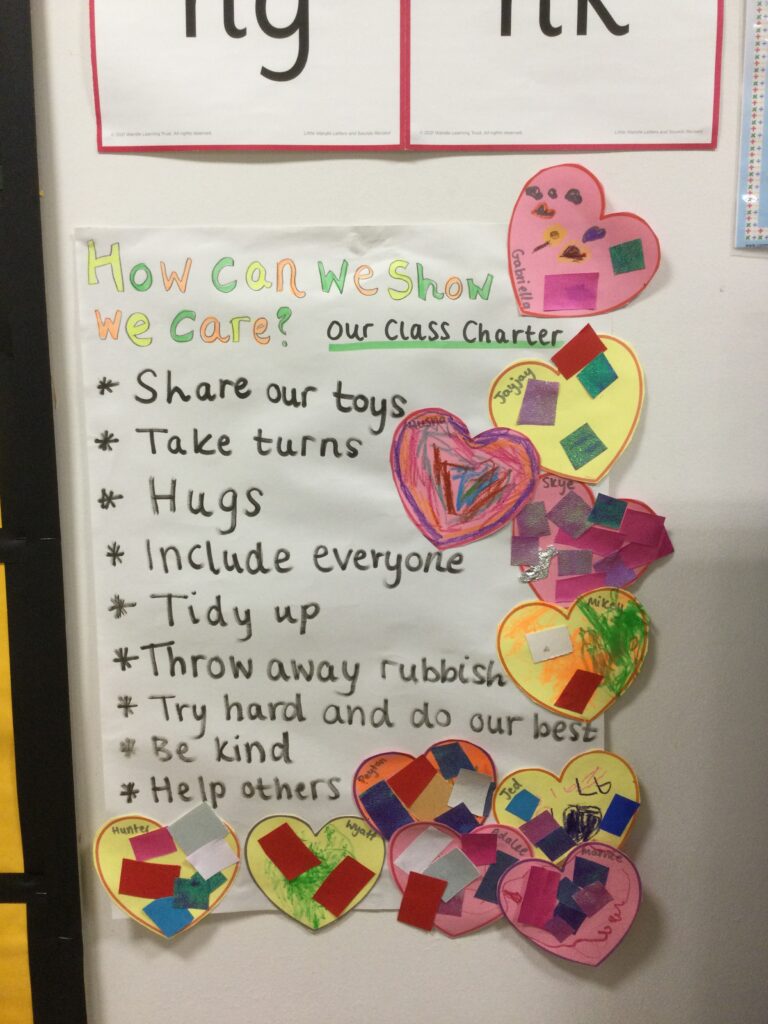 ng
nk
© 2021 Wandle Learning Trust. All rights reserved.
Little Wandle Letters and Sounds Revised
Little Wandle Letters and Sounds Revised
Gabriella
How can we show
we care? Our Class Charter
Jayjay
* Share our toys
* Take turns
* Hugs
Skye
* Include everyone
* Tidy up
Mikey
* Throw away rubbish
* Try hard and do our best
* Be kind
* Help others
Peyton
Jed
Hunter
Wyatt